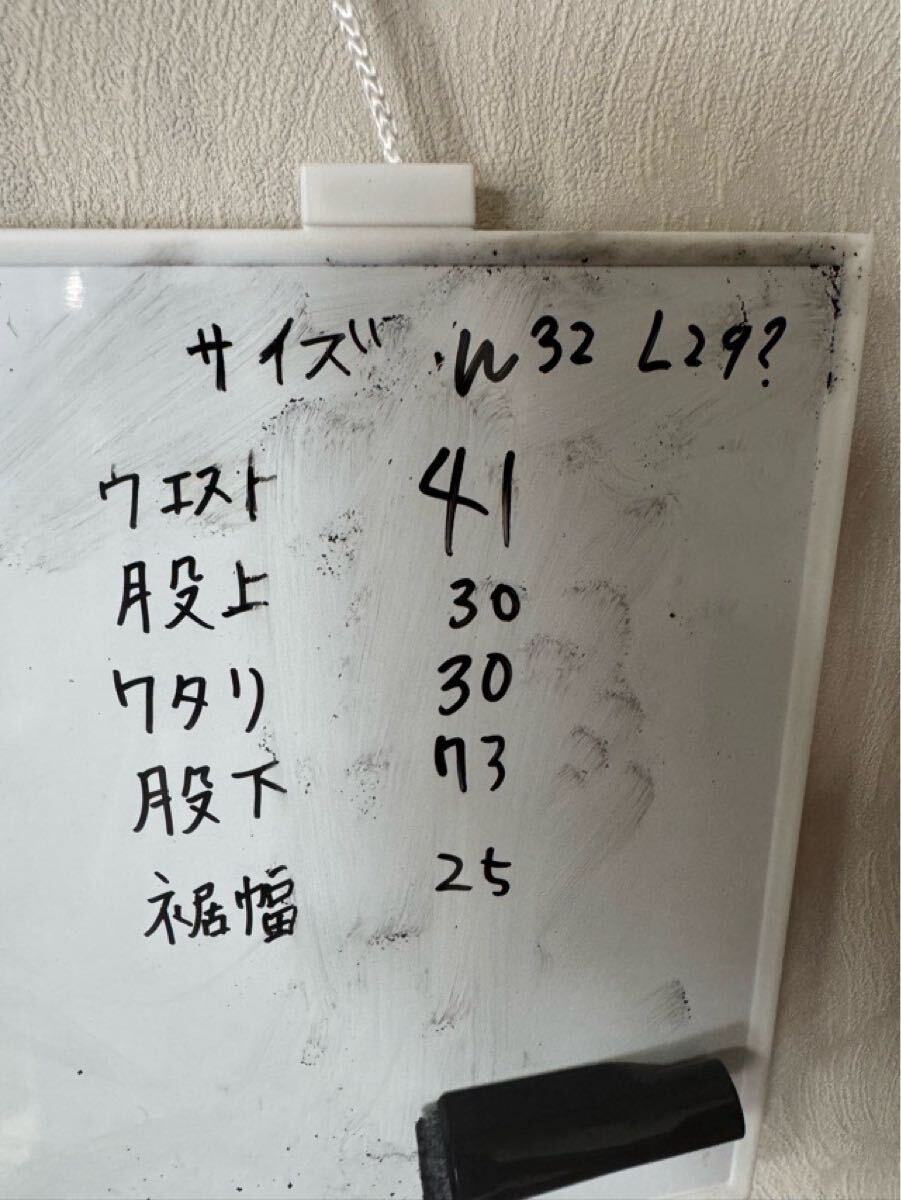 サイズ W32 L29?
ウエスト 41
股上 30
ワタリ 30
股下 73
裾幅 25